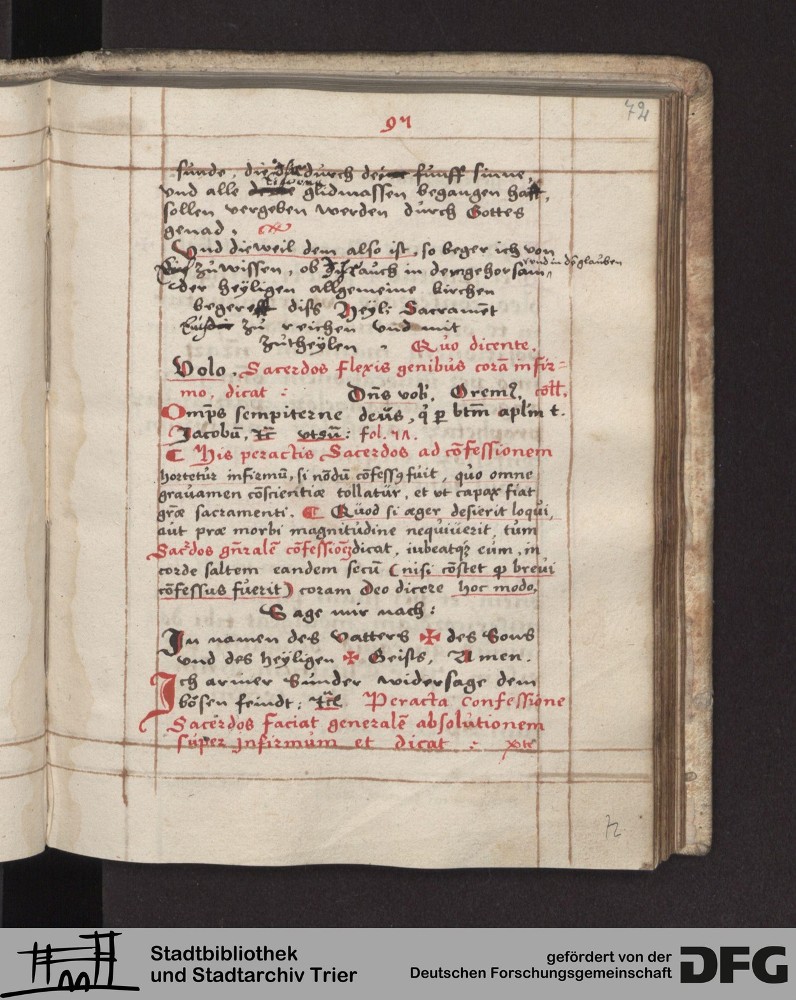 72
91
sunde, die durch funff sinne,
vnd alle glidmassen begangen hatt,
sollen vergeben werden durch Gottes
genad.
Vnd dieweil dem also ist, so beger ich von
zu wissen, ob auch in dem gehorsam, vnd in dē glauben
der heÿligen allgemeine kirchen
begere diss Heyli: Sacramēt
zu reichen vnd mit
zutheÿlen. Quo dicente.
Volo. Sacerdos flexis genibus corā infir=
mo, dicat: Dn̄s vob. Orem9. coll.
Omp̄s sempiterne deus, q̇ p btm̄ aplm̄ t.
Jacobū, Ec̄ vtsū: fol. 71.
His peractis Sacerdos ad cōfessionem
hortetur infirmū, si nōdū cōfess9 fuit, quo omne
grauamen cōscientiæ tollatur, et vt capax fiat
gr̄æ sacramenti. Quod si æger desierit loqui,
aut præ morbi magnitudine nequiuerit, tum
Sac̄dos gn̄ralē cōfessionē dicat, iubeatq; eum, in
corde saltem eandem secū (nisi cōstet q breui
cōfessus fuerit) coram Deo dicere hoc modo,
Sage mir nach:
In namen des Vatters ✠ des Sons
vnd des heÿligen ✠ Geists, Amen.
Ich armer Sunder widersage dem
bösen feindt: Ec̄. Peracta confessione
Sacerdos faciat generalē absolutionem
super infirmum et dicat: xp̄e
72
Stadtbibliothek
und Stadtarchiv Trier
gefördert von der
Deutschen Forschungsgemeinschaft
DFG